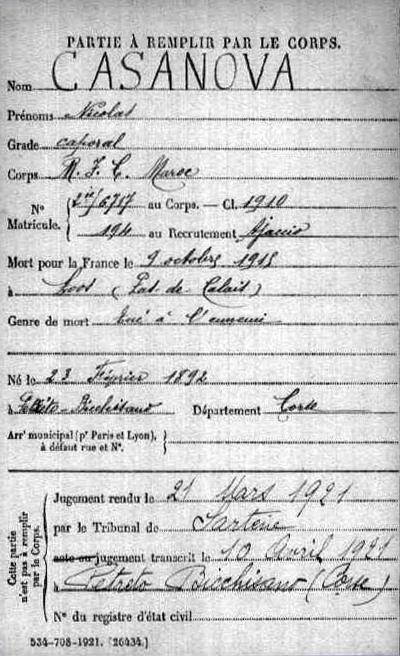 PARTIE À REMPLIR PAR LE CORPS.
Nom CASANOVA
Prénoms Nicolas
Grade caporal
Corps R. I. C. Maroc
N° Matricule. { 6717 au Corps. — Cl. 1910
194 au Recrutement Ajaccio
Mort pour la France le 9 octobre 1915
à Loos (Pas-de-Calais)
Genre de mort Tué à l'ennemi
Né le 23 Février 1892
à Bicchisano Département Corse
Arrt municipal (pr Paris et Lyon), à défaut rue et N°. }
Cette partie n'est pas à remplir par le Corps.
Jugement rendu le 21 Mars 1921
par le Tribunal de Sartène
acte ou jugement transcrit le 10 Avril 1921
à Petreto Bicchisano (Corse)
N° du registre d'état civil
534-708-1921. [26434.]